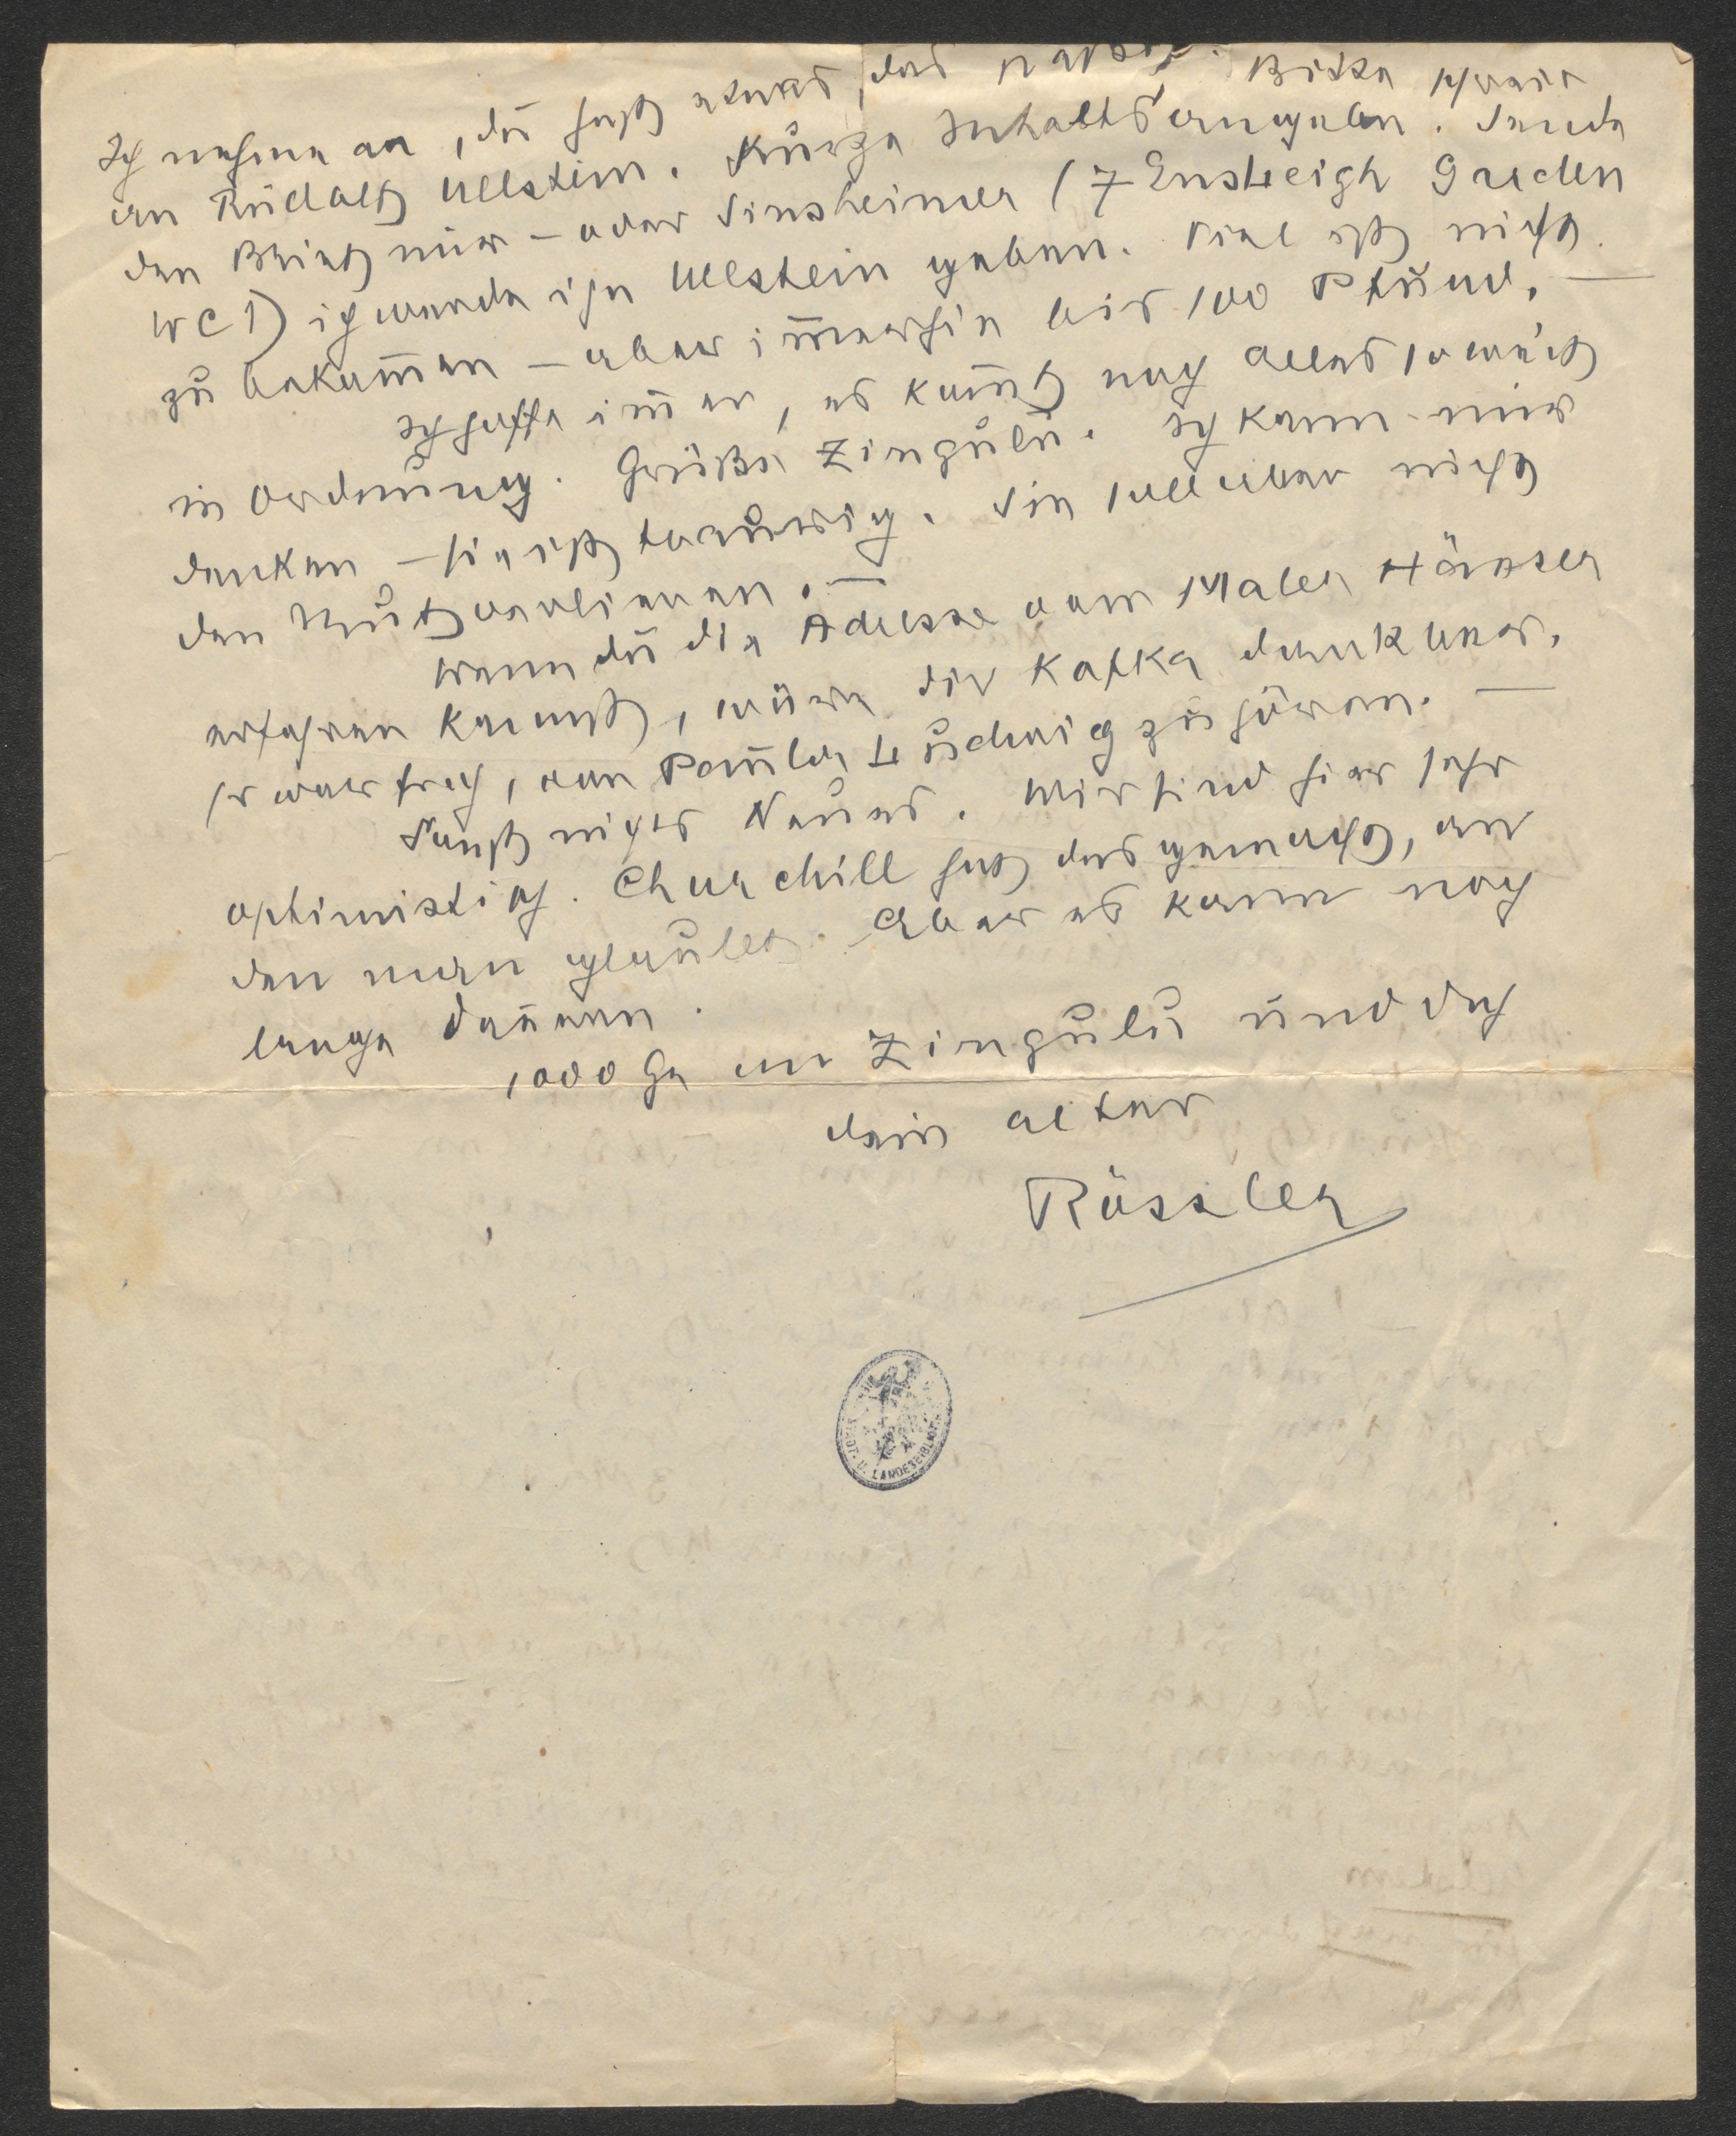 Ich nehme an, du hast etwas, das passt. Bitte schreib
an Rudolf Ullstein. Kurze Inhaltsangaben. Sende
den Brief mir – oder Sinsheimer (7 Ensleigh Garden
WC1) ich werde ihn Ullstein geben. Viel ist nicht
zu bekommen – aber immerhin bis 100 Pfund. –
Ich hoffe immer, es kommt noch alles soweit
in Ordnung. Grüße Zingulu. Ich kann mir
denken – sie ist traurig. Sie soll aber nicht
den Mut verlieren. –
Wenn du die Adresse vom Maler
erfahren kannst, wäre dir Kafka dankbar.
Er war froh, von Pamler Ludwig zu hören. –
Sonst nichts Neues. Wir sind hier sehr
optimistisch. Churchill hat das gemacht, an
den man glaubt. Aber es kann noch
lange dauern.
1000 Gr an Zingulu und dich
dein alter
Rössler
U. LANDESBIBL